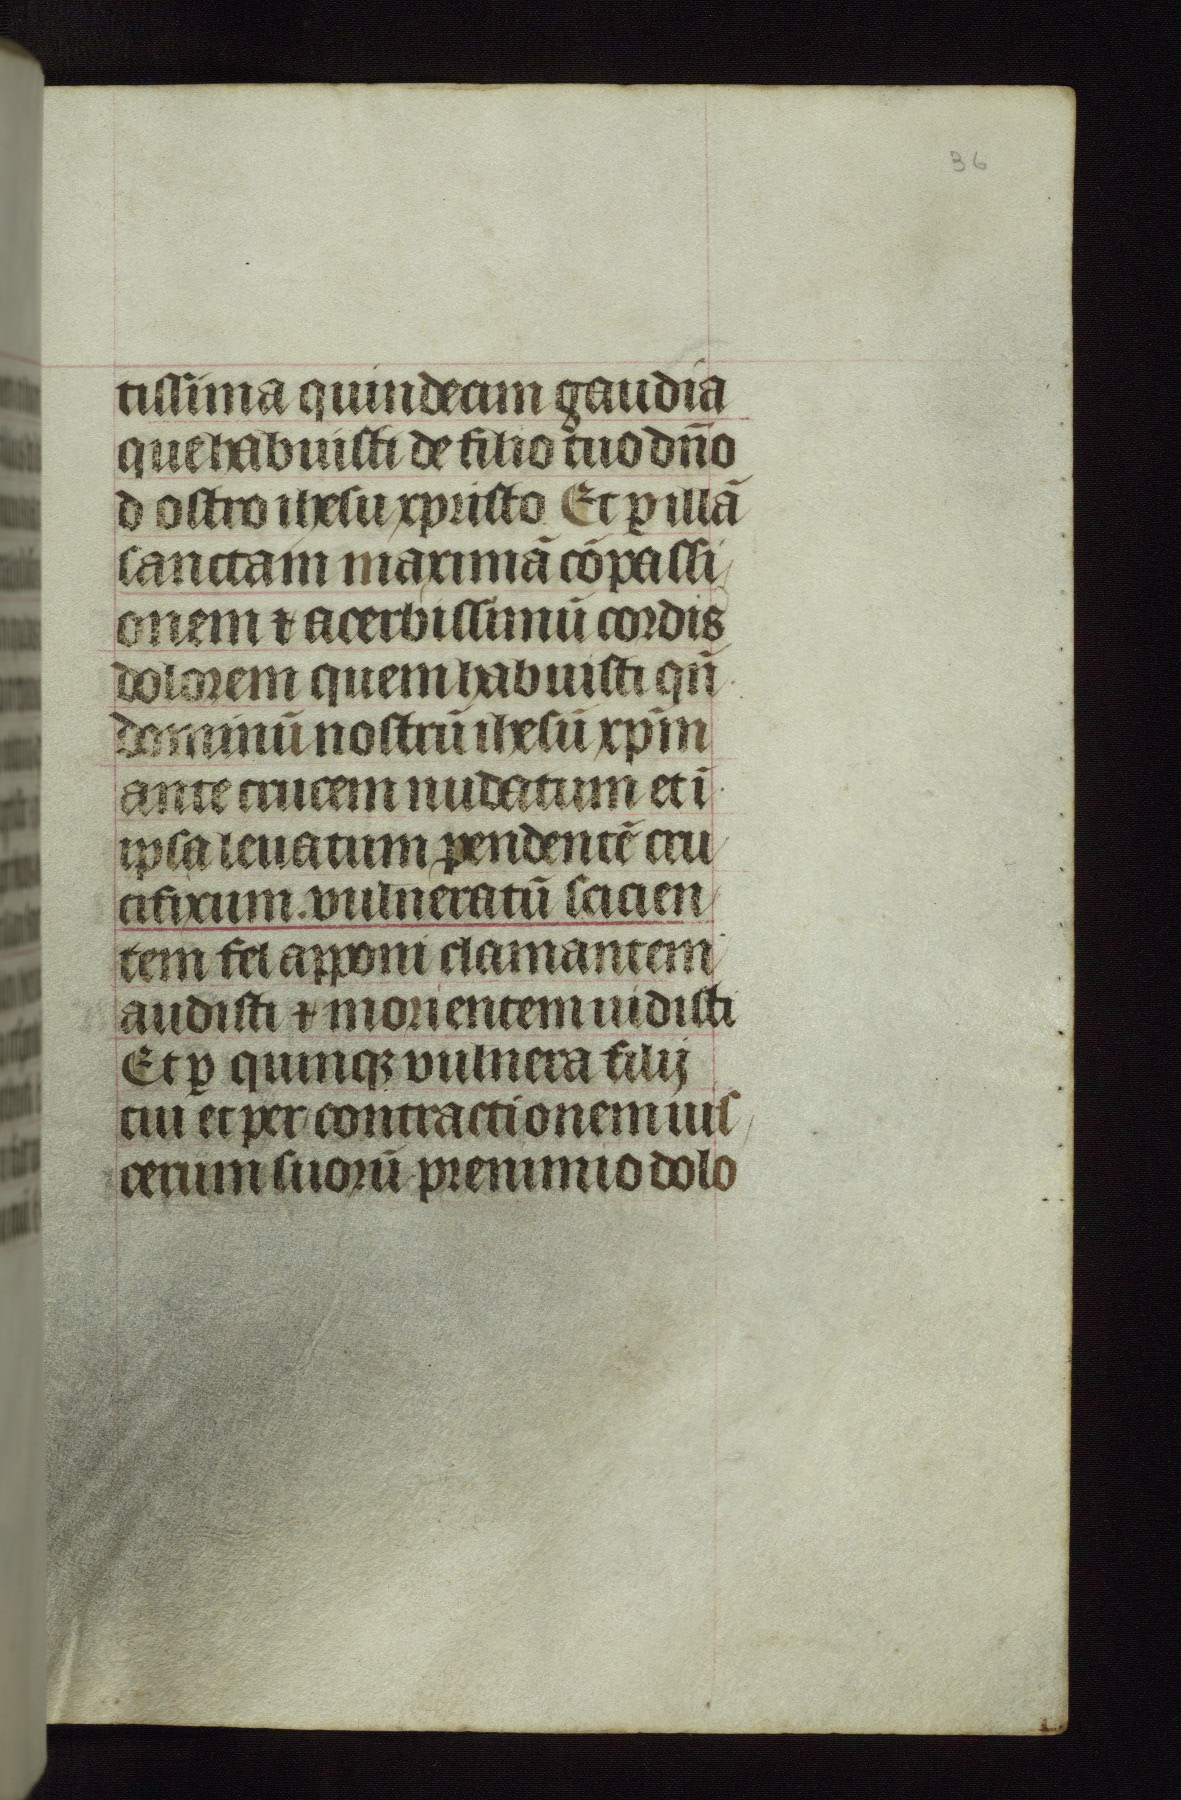 36
tissima quindecim gaudia
que habuisti de filio tuo dn̄o
d ostro ihesu xpristo Et ꝑ illā
sanctam maximā cōpassi
onem ⁊ acerbissimū cordis
dolorem quem habuisti qn̄
dominū nostrū ihesū xp̄m
ante crucem nudatum et ī
ipsa leuatum pendentē cru
cifixum. vulneratū scicien
tem fel apponi clamantem
audisti ⁊ morientem uidisti
Et ꝑ quinqꝫ vulnera filij
tui et per contractionem uis
cerum suorū pre nimio dolo